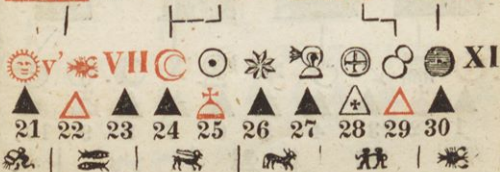 v' VII XI
21 22 23 24 25 26 27 28 29 30